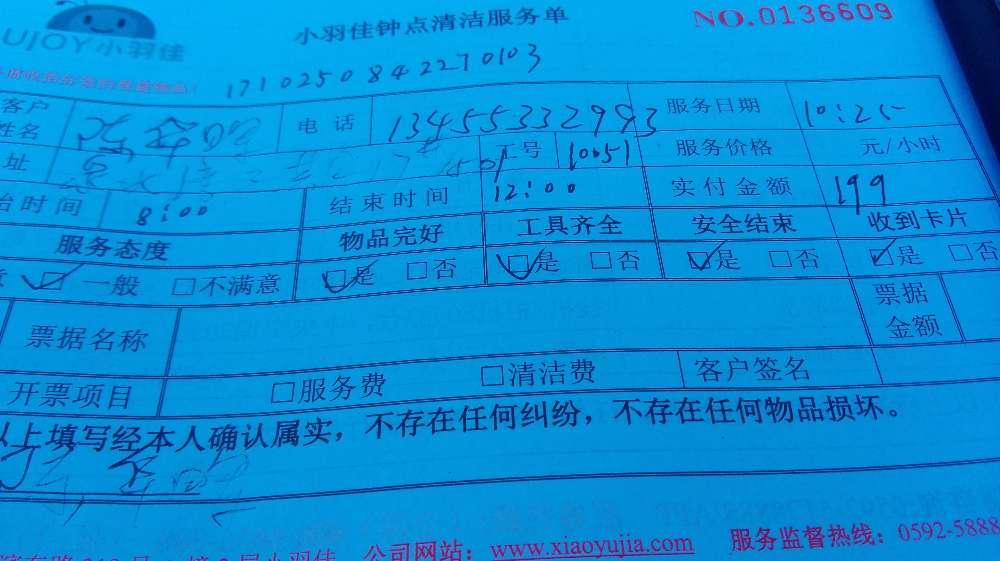 UJOY小羽佳
小羽佳钟点清洁服务单
NO.0136609
17102508422270103
客户姓名
电话 13455332993
服务日期 10:25
址
501
工号 10051
服务价格 元/小时
始时间 8:00
结束时间 12:00
实付金额 199
服务态度 物品完好 工具齐全 安全结束 收到卡片
意 □一般 □不满意 □是 □否 □是 □否 □是 □否 □是 □否
票据名称 票据金额
开票项目 □服务费 □清洁费 客户签名
以上填写经本人确认属实，不存在任何纠纷，不存在任何物品损坏。
小羽佳 公司网站：www.xiaoyujia.com 服务监督热线：0592-5888